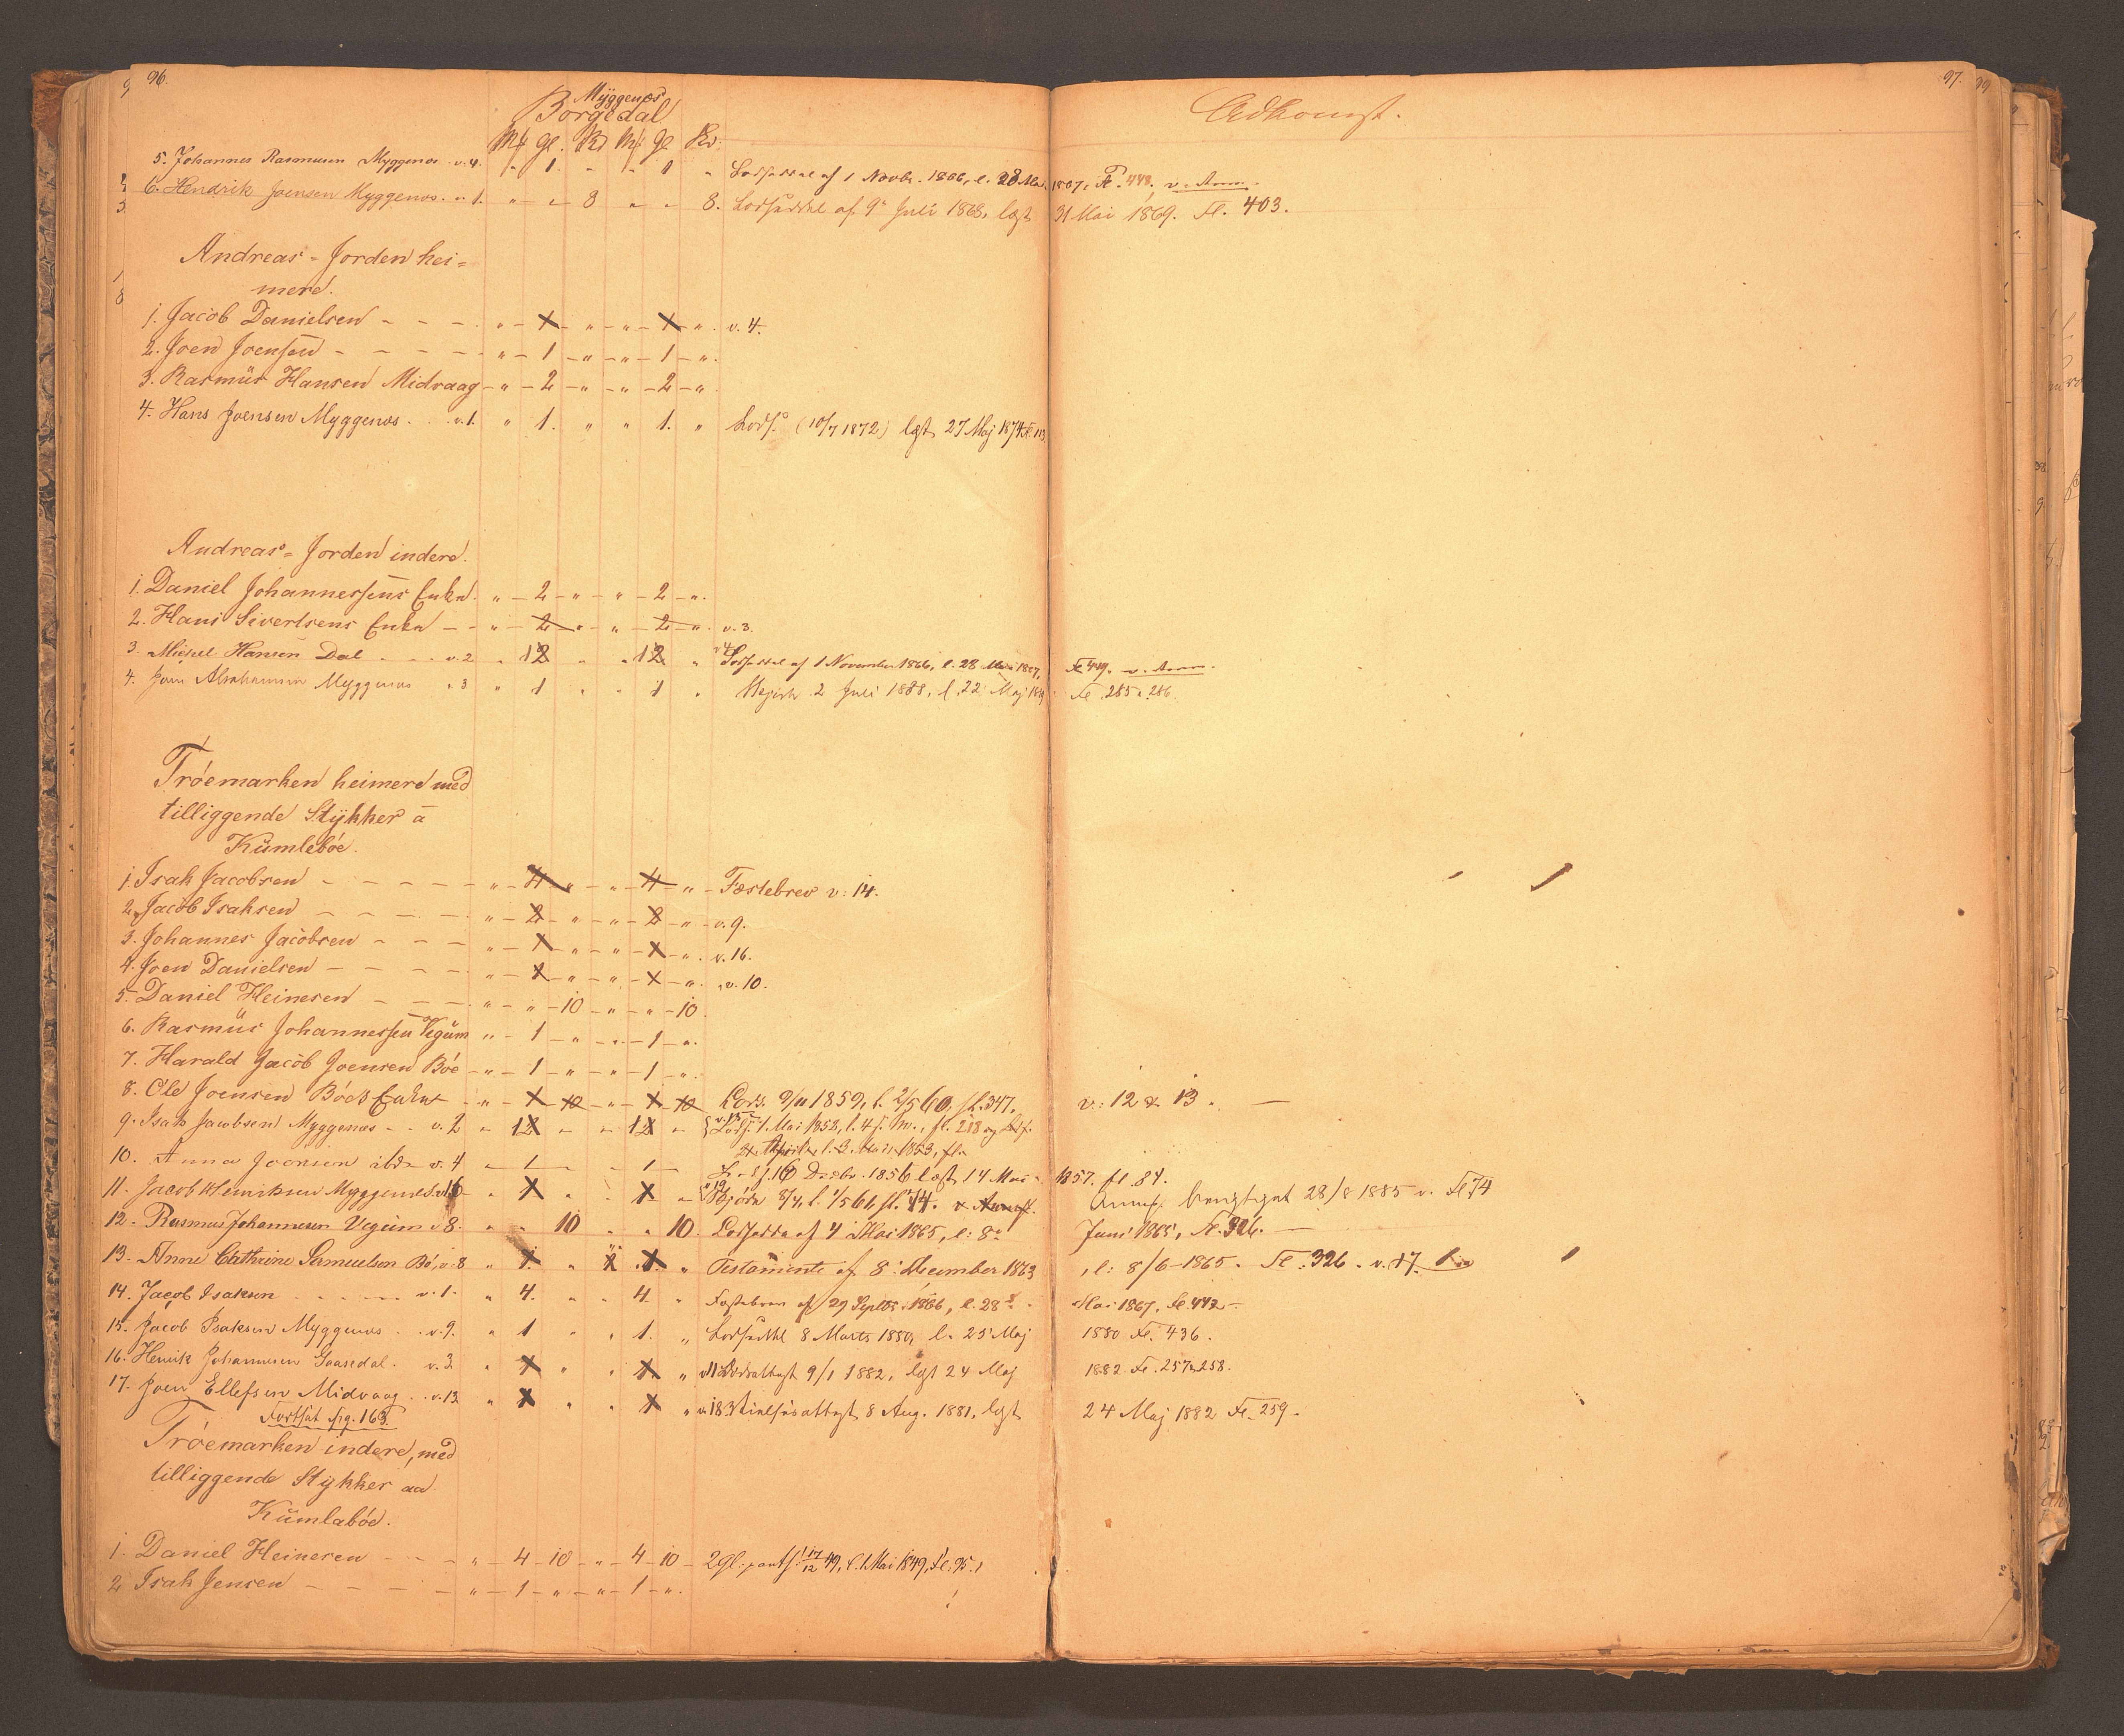 96.
97.
Myggenæs
Borgedal
Adkomst.
Mk Gl. Kd Mk Gl Kd
5. Johannes Rasmusen Myggenæs v. 4. " 1. " " 1 " Lodseddel af 1 Novbr. 1866, l. 28 Mai 1867, Fl. 448, v. Anm.
6. Hendrik Joensen Myggenæs. v. 1. " " 8 " " 8. Lodseddel af 9de Juli 1868, læst 31 Mai 1869. Fl. 403.
Andreas-Jorden hei=
mere.
1. Jacob Danielsen - - - " - 1 - " - " - 1 - " . v. 4.
2. Joen Joensen - - - - " - 1 - " - " - 1 - " .
3. Rasmus Hansen Midvaag - " - 2 - " - " - 2 - "
4. Hans Joensen Myggenæs . . v. 1. " 1. " " 1. " Lods. (10/7 1872) læst 27 Maj 1874 Fl 113
Andreas-Jorden indere.
1. Daniel Johannessens Enke. " - 2 - " - " - 2 - " .
2. Hans Sivertsens Enke - - " - 2 - " - " - 2 - " . v. 3.
3. Mickel Hansen Dal . . . v. 2 " 12 " " 12 " Lodseddel af 1 November 1866, l. 28 Mai 1867, Fl 449. v. Anm.
4. Joen Abrahamsen Myggenæs v. 3 " 1 " " 1 " 2 Juli 1888, l. 22 Maj Fl. 285 & 286.
Tróemarken heimere med
tilliggende Stykker a
Kumlebóe.
1. Isak Jacobsen - - - - - " - 4 - " - " - 4 - " - Fæstebrev v. 14.
2. Jacob Isaksen - - - - " - 2 - " - " - 2 - " - v. 9.
3. Johannes Jacobsen - - - " - 1 - " - " - 1 - " . v. 16.
4. Joen Danielsen - - - - " - 1 - " - " - 1 - " . v. 10.
5. Daniel Heinesen - - - " - " - 10 - " - " - 10.
6. Rasmus Johannessen Vegum " - 1 - " - " - 1 - " .
7. Harald Jacob Joensen Bóe - " - 1 - " - " - 1 - " .
8. Ole Joensen Bóes Enke - " - 1 - 10 - " - 1 - 10 Lods. 9/11 1859, l. 2/5 60, fl. 347, v: 12 & 13. -
9. Isak Jacobsen Myggenæs - . v. 2 " 12 " " 12 " Lods. 1. Mai 1852, l. 4 s. M., fl. 218 og
April l. 2. Mai 1853, fl.
10. Anna Joensen ibd. v. 4 - 1 - - 1 - Lods. 16 Decbr. 1856 læst 14 Mai 1857. fl. 84.
11. Jacob Henriksen Myggenæs. v. 16 " 1 " " 1 " Skjøde 8/4, l. 1/5 61, fl. 44. v. Anm. berigtiget 28/8 1885 v. Fl 74
12. Rasmus Johannesen Vegum v. 8. " " 10 " " 10. Lodseddel af 4 Mai 1865, l: 8de Juni 1865, Fl. 326. -
13. Anne Cathrine Samuelsen Bó, v. 8 " 1 " " 1 " Testamente af 8. December 1863, l: 8/6 1865. Fl. 326. v. 17.
14. Jacob Isaksen . . . . . . v. 1. " 4. " " 4. " Fæstebrev af 29 Septbr. 1866, l. 28de Mai 1867, fl. 442 -
15. Jacob Isaksen Myggenæs . . v. 9. " 1 " " 1. " Lodseddel 8 Marts 1880, l. 25 Maj 1880 Fl. 436.
16. Henrik Johannesen Gaasedal. v. 3. " 1 " " 1 " 9/1 1882, læst 24 Maj 1882 Fl. 257 & 258.
17. Joen Ellefsen Midvaag . . v. 13 " 1 " " 1 " v. 18. 8 Aug. 1881, læst 24 Maj 1882 Fl. 259.
Fortsat pg. 163.
Tróemarken indere, med
tilliggende Stykker aa
Kumlabóe.
1. Daniel Heinesen - - - " - 4 - 10 - " - 4 - 10 - 2 gl: pants. 17/12 49, l. 1 Mai 1849, Fl: 95.
2. Isak Jensen - - - - " - 1 - " - " - 1 - " .